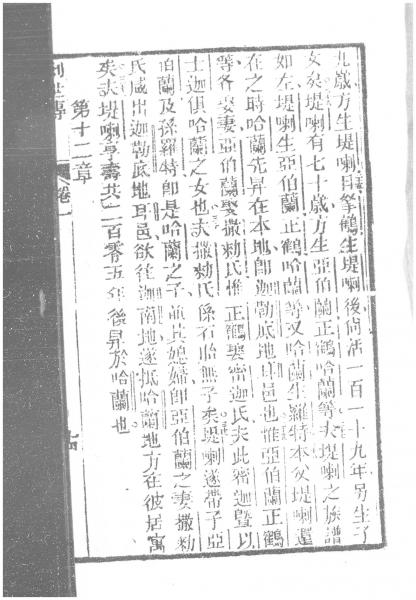 九歲方生堤喇且拿鶴生堤喇後尙活一百一十九年另生子
女矣堤喇有七十歲方生亞伯蘭正鶴哈蘭等夫堤喇之族譜
如左堤喇生亞伯蘭正鶴哈蘭等又哈蘭生羅特本父堤喇還
在之時哈蘭先昇在本地卽迦勒底地耳邑也惟亞伯蘭正鶴
等各娶妻亞伯蘭娶撒勑氏惟正鶴娶密迦氏夫此密迦曁以
士迦俱哈蘭之女也夫撒勑氏係石胎無子矣堤喇遂帶子亞
伯蘭及孫羅特卽是哈蘭之子並其媳婦卽亞伯蘭之妻撒勑
氏咸出迦勒底地耳邑欲往迦南地遂抵哈蘭地方在彼居寓
矣夫堤喇享壽共二百零五年後昇於哈蘭也
第十二章
創世傳 卷一